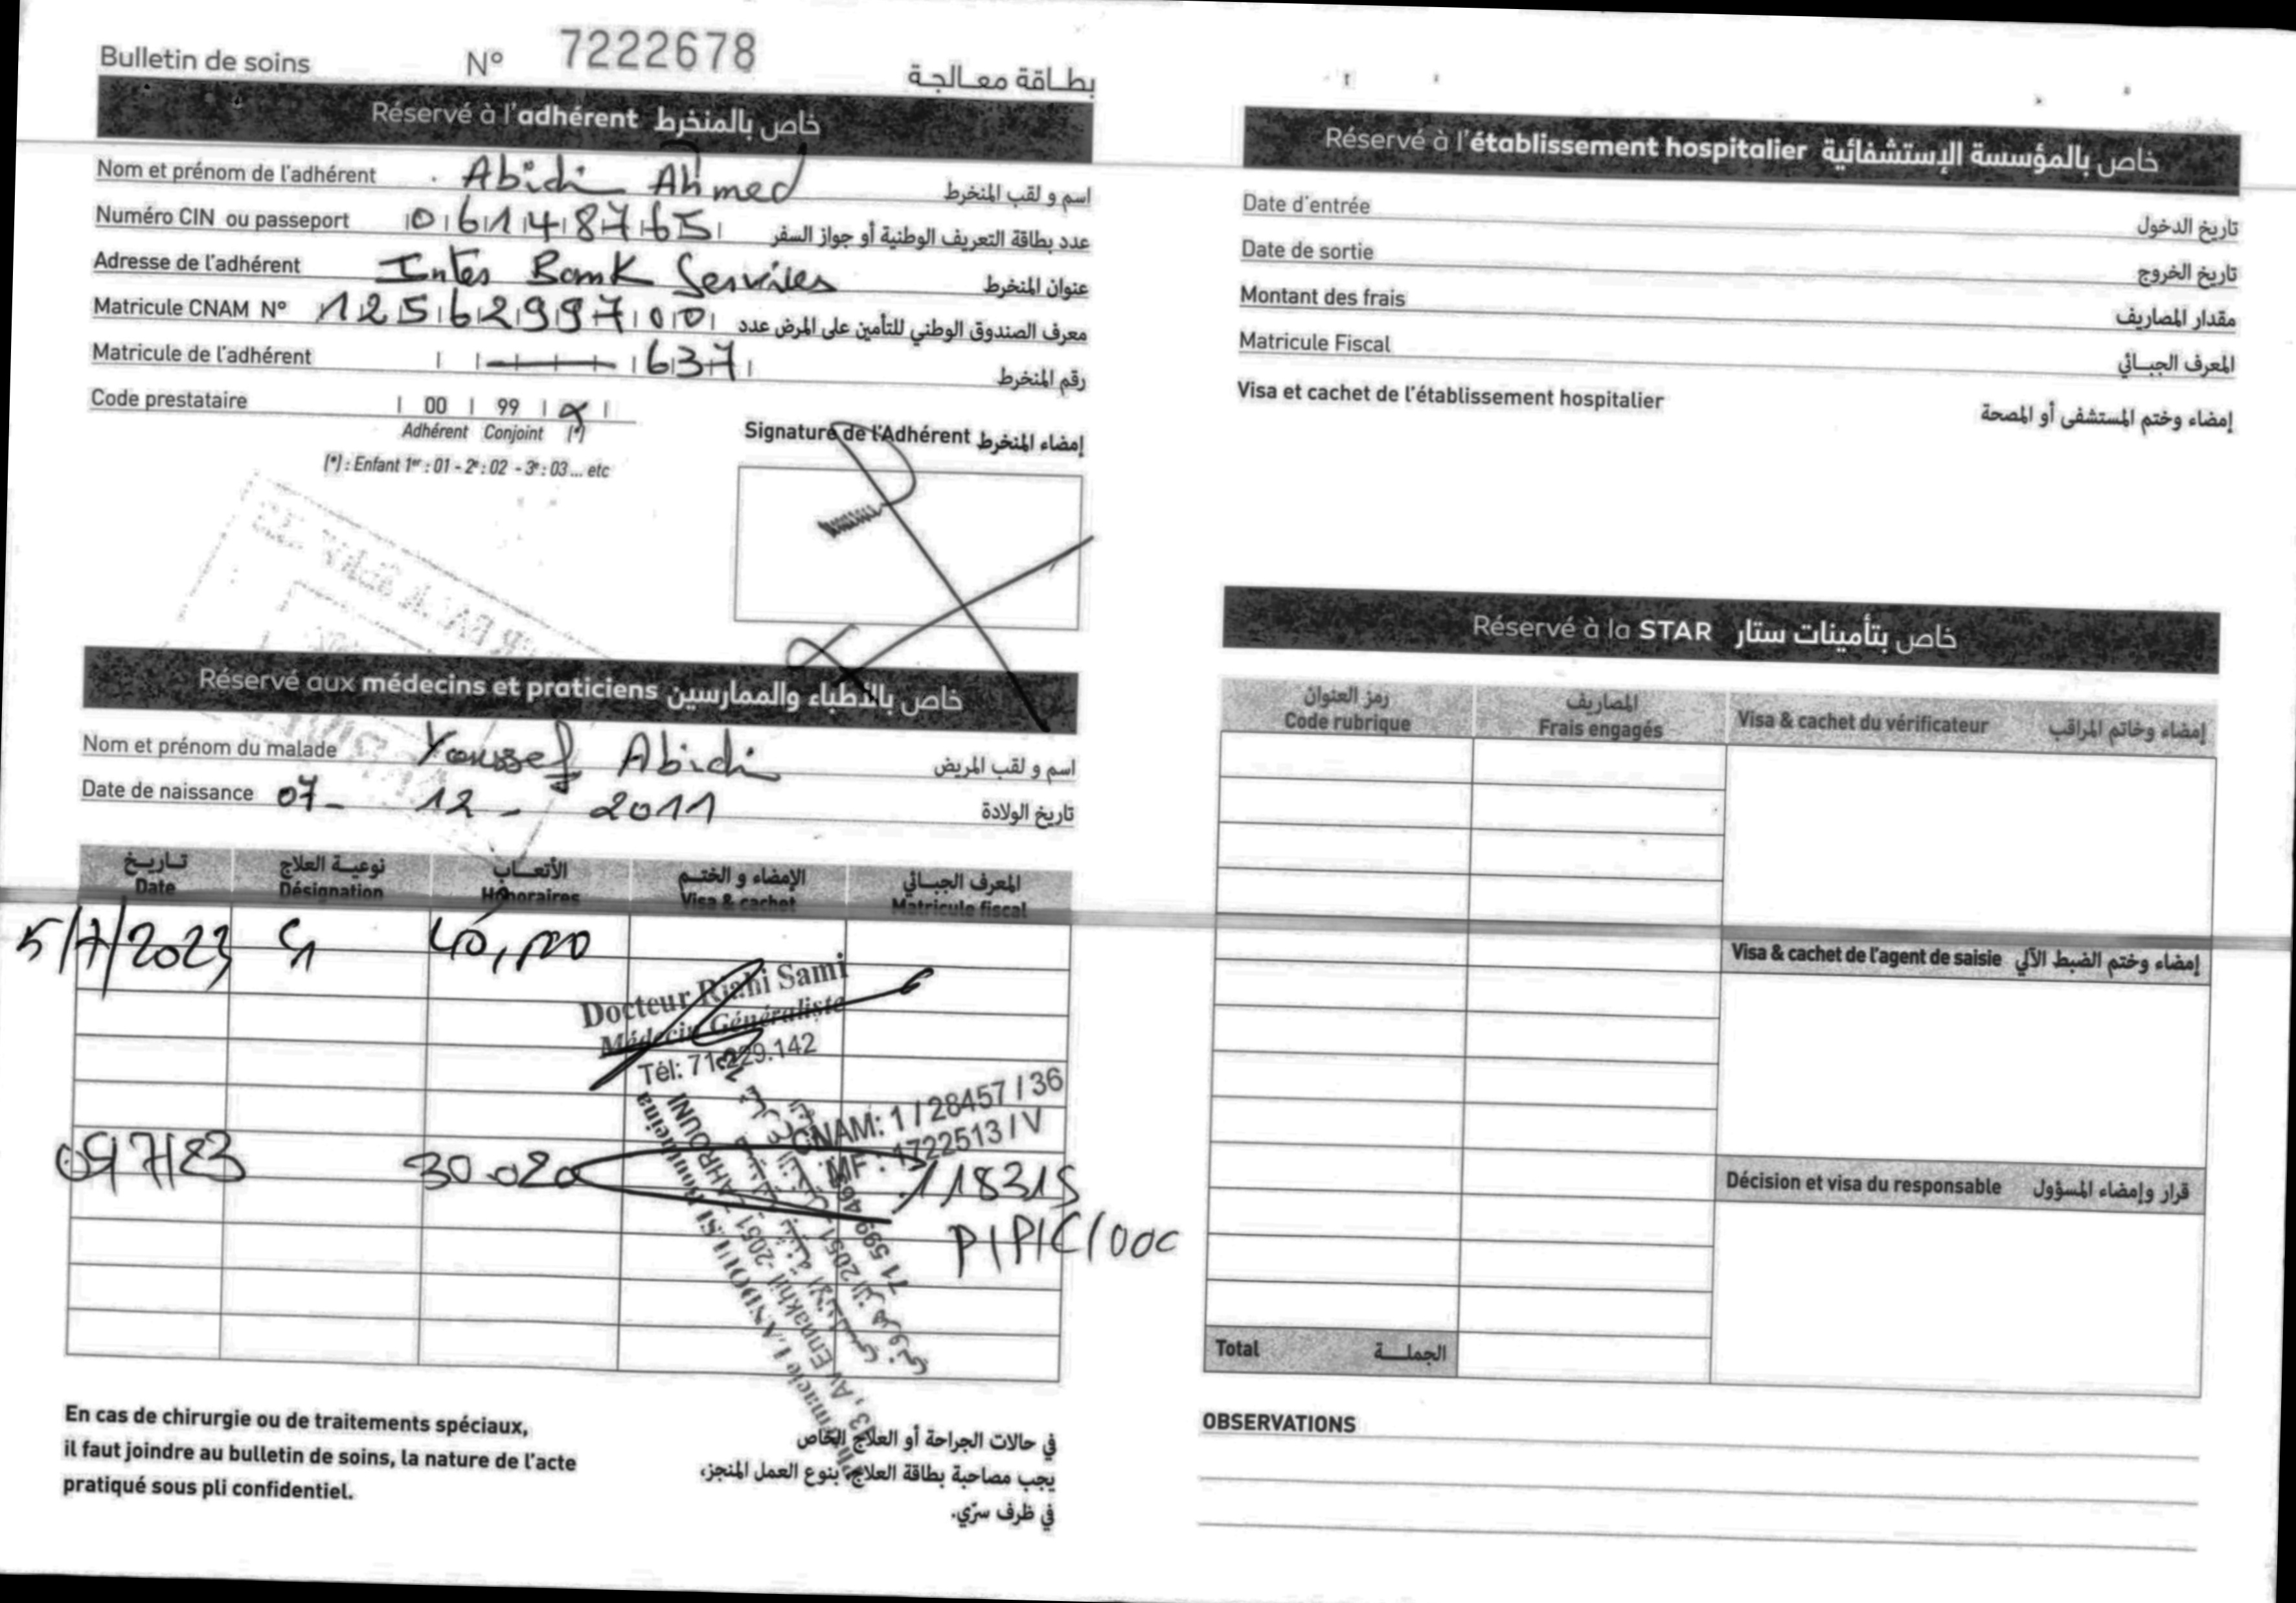 Bulletin de soins N° 7222678 بطاقة معالجة
Réservé à l'adhérent خاص بالمنخرط
Nom et prénom de l'adhérent Abidi Ahmed اسم و لقب المنخرط
Numéro CIN ou passeport 06148765 عدد بطاقة التعريف الوطنية أو جواز السفر
Adresse de l'adhérent Inter Bank Services عنوان المنخرط
Matricule CNAM N° 1256299700 معرف الصندوق الوطني للتأمين على المرض عدد
Matricule de l'adhérent 637 رقم المنخرط
Code prestataire 00 99
Adhérent Conjoint (*)
(*) : Enfant 1er : 01 - 2e : 02 - 3e : 03 ... etc
Signature de l'Adhérent إمضاء المنخرط
Réservé aux médecins et praticiens خاص بالأطباء والممارسين
Nom et prénom du malade Youssef Abidi اسم و لقب المريض
Date de naissance 07 - 12 - 2011 تاريخ الولادة
تاريخ نوعية العلاج الأتعاب الإمضاء و الختم المعرف الجبائي
Date Désignation Honoraires Visa & cachet Matricule fiscal
5/7/2023 C1 40,000
Docteur Riahi Sami
Médecin Généraliste
Tél: 71.229.142
CNAM: 1 / 28457 / 36
MF : 1722513 / V
05/7/23 30.020 118315
P/P/C/000
En cas de chirurgie ou de traitements spéciaux,
il faut joindre au bulletin de soins, la nature de l'acte
pratiqué sous pli confidentiel.
في حالات الجراحة أو العلاج الخاص
يجب مصاحبة بطاقة العلاج، بنوع العمل المنجز،
في ظرف سرّي.
Réservé à l'établissement hospitalier خاص بالمؤسسة الإستشفائية
Date d'entrée تاريخ الدخول
Date de sortie تاريخ الخروج
Montant des frais مقدار المصاريف
Matricule Fiscal المعرف الجبائي
Visa et cachet de l'établissement hospitalier إمضاء وختم المستشفى أو المصحة
Réservé à la STAR خاص بتأمينات ستار
رمز العنوان المصاريف
Code rubrique Frais engagés Visa & cachet du vérificateur إمضاء وخاتم المراقب
Visa & cachet de l'agent de saisie إمضاء وختم الضبط الآلي
Décision et visa du responsable قرار وإمضاء المسؤول
Total الجملة
OBSERVATIONS